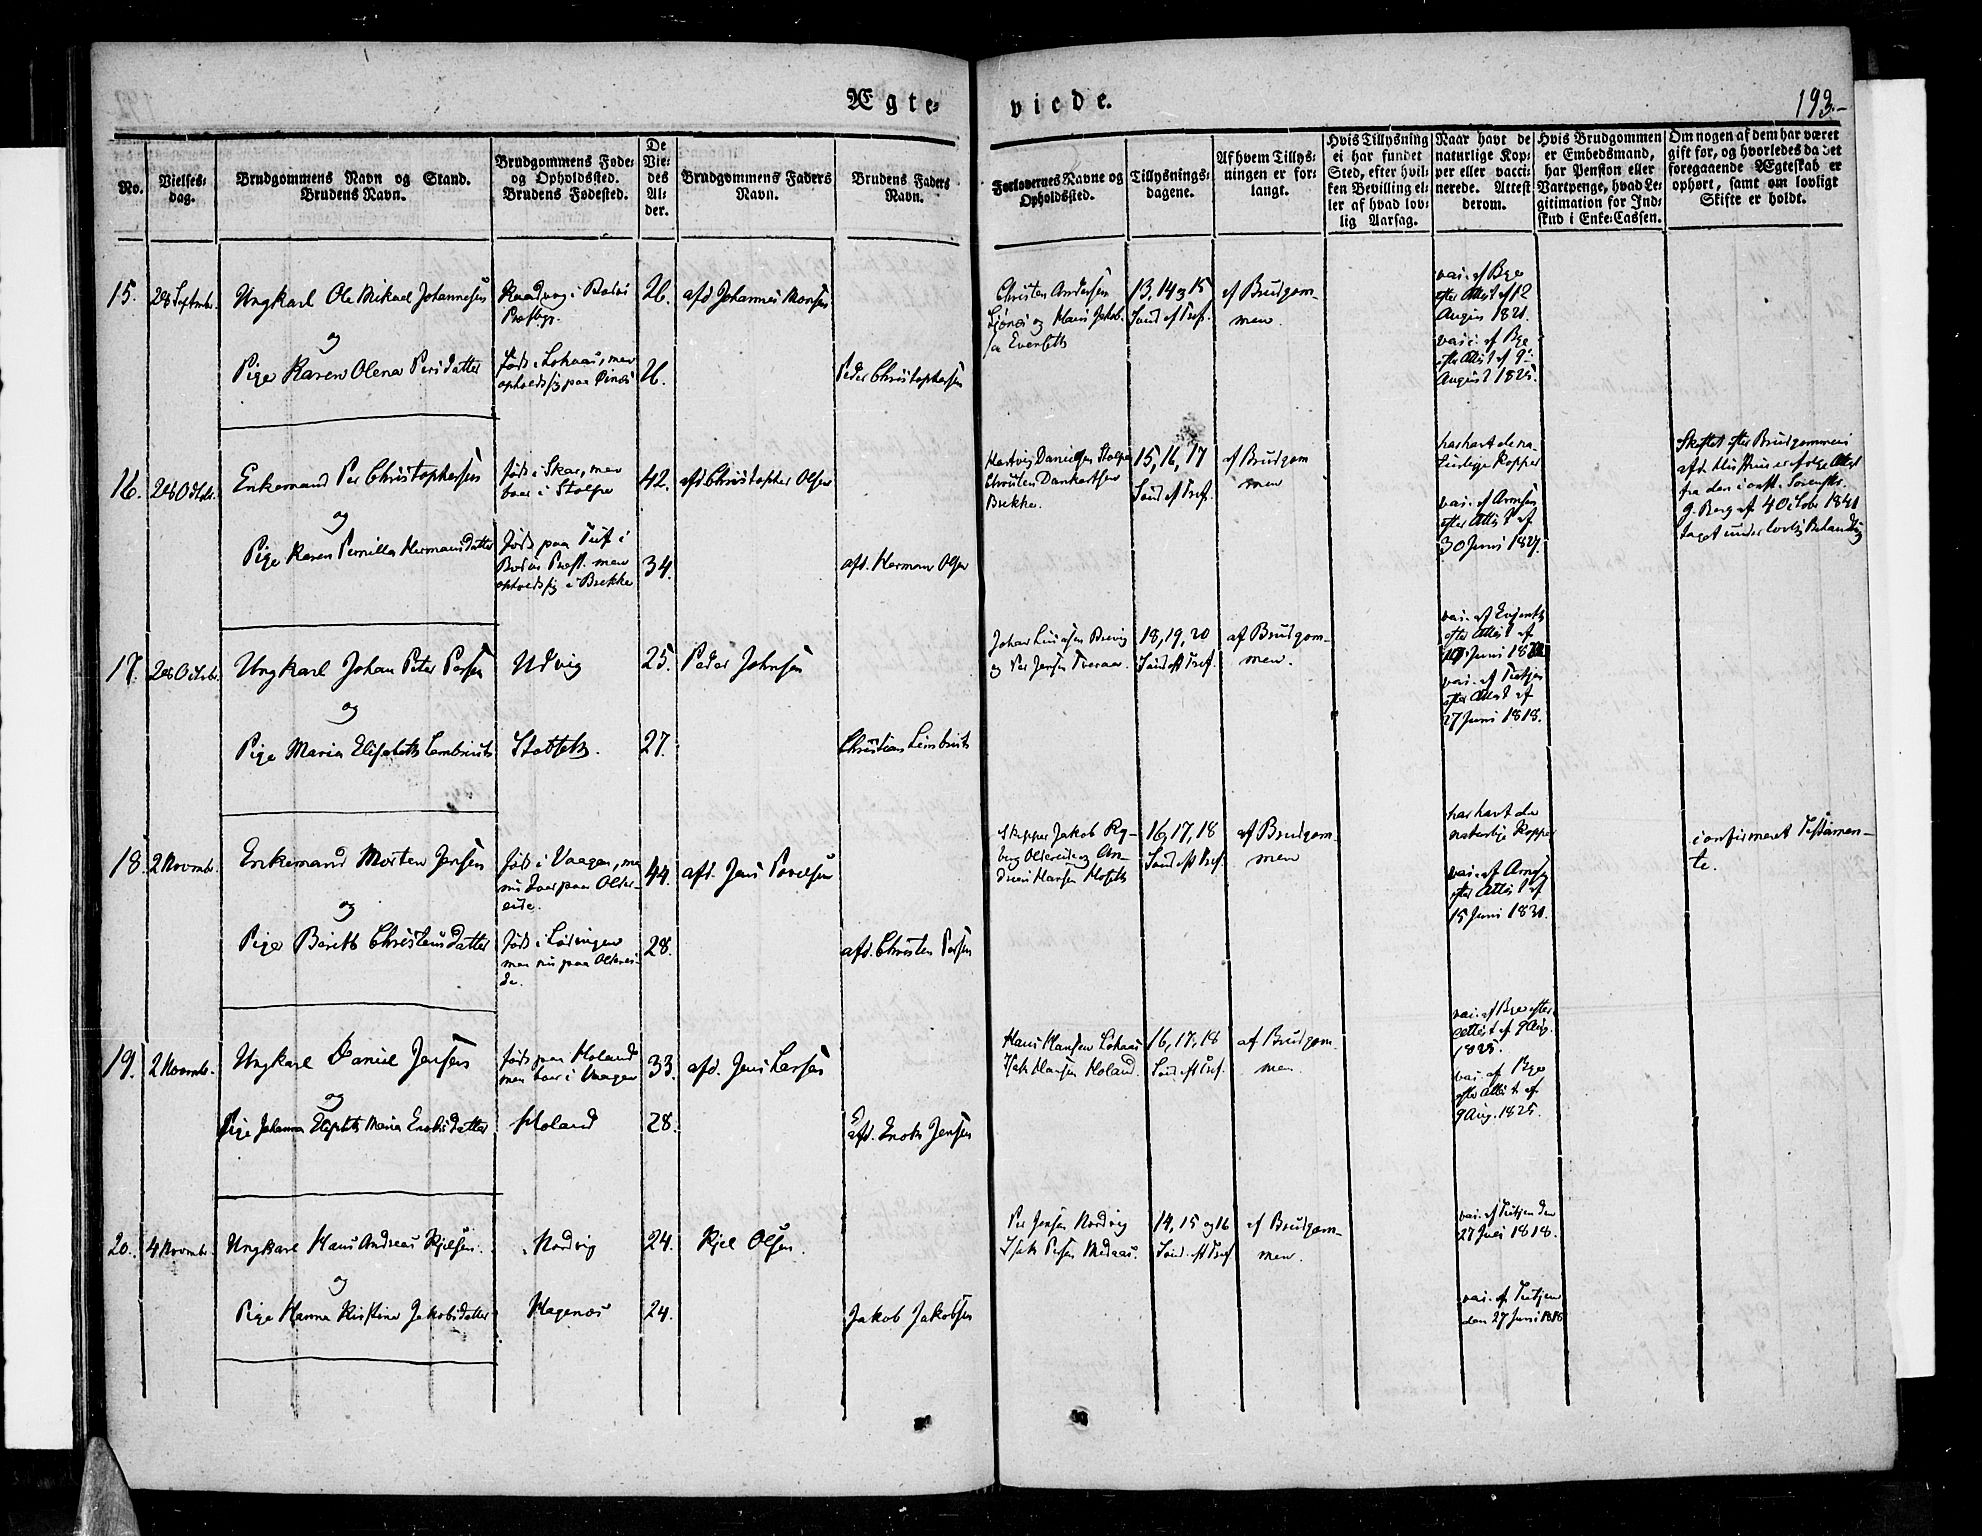 Ægte=
viede.
193.
No.
Vielses=
dag.
Brudgommens Navn og Stand.
Brudens Navn.
Brudgommens Føde=
og Opholdssted.
Brudens Fødested.
De
Vie=
des
Al=
der.
Brudgommens Faders
Navn.
Brudens Faders
Navn.
Forlovernes Navne og
Opholdssted.
Tillysnings=
dagene.
Af hvem Tillys=
ningen er for=
langt.
Hvis Tillysning
ei har fundet
Sted, efter hvil=
ken Bevilling el=
ler af hvad lov=
lig Aarsag.
Naar havt de
naturlige Kop=
per eller vacci=
nerede. Attest
derom.
Hvis Brudgommen
er Embedsmand,
har Pension eller
Vartpenge, hvad Le=
gitimation for Ind=
skud i Enke=Cassen.
Om nogen af dem har været
gift før, og hvorledes da det
foregaaende Ægteskab er
ophørt, samt om lovligt
Skifte er holdt.
15.
28 Septmbr.
Ungkarl Ole Mikael Johannesen
og
Pige Karen Olena Persdatter
i Bodøe
Præstgj.
født i Løkaas, men
opholdt sig paa
26.
26.
afd. Johannes Monsen
Peder Christophersen
Christen Andersen
og Hans Jakob=
sen Evensetb
13, 14 og 15
Sønd. ef Tref.
af Brudgom=
men.
vac. af Bye
efter Attest af 12
August 1821.
vac. af Bye
efter Attest af 9
August 1825.
16.
28 Octbr.
Enkemand Per Christophersen
og
Pige Karen Pernilla Hermansdatter
født i Skar, men
boer i Stolpe
født paa Tuf i
Bodøe Præst. men
opholdt sig i Brekke
42.
34.
afd. Christopher Olsen
afd. Herman Olsen
Hartvig Danielsen Stolpe
Christen Dankertsen
Brekke.
15, 16, 17
Sønd. ef Tref.
af Brudgom
men
har havt de na=
turlige Kopper
vac. af Arnesen
efter Attest af
30 Juni 1827.
Skiftet efter Brudgommens
afd. Hustru er ifølge Attest
fra den const. Sorenskr.
g. Berg af 4 October 1841
taget under lovlig Behandling
17.
28 Octbr.
Ungkarl Johan Peter Persen
og
Pige Maria Elisabeth Lembrints
Udvig
Stabseth.
25.
27.
Peder Johnsen
Christian Lembrints
Johan Brevig
og Per Jensen
18, 19, 20
Sønd. ef Tref.
af Brudgom=
men.
efter Attest af
Juni
efter Attest af
27 Juni 1818.
18.
2 Novmbr.
Enkemand Morten Jensen
og
Pige Beritb Christensdatter
født i Vaagen, men
nu boer paa Older=
eide.
født i Lødingen
men nu paa Olderei=
de.
44.
28.
afd. Jens Povelsen
afd. Christen Persen
Skipper Jakob Ry=
berg Oldereide og An=
dreas Hansen
16, 17, 18
Sønd. ef Tref.
af Brudgom=
men
har havt de
naturlige Kopper
vac. af Arnesen
efter Attest af
15 Juni 1831.
confirmeret Testamen=
te.
19.
2 Novmbr.
Ungkarl Daniel Jensen
og
Pige Johanna Elisabeth Maria Enoksdatter
født paa Moland
men boer i Vaagen
Moland
33.
28.
afd. Jens Larsen
afd. Enok Jensen
Hans Hansen Løkaas
Isak Hansen Moland.
16, 17, 18
Sønd. ef Tref.
af Brudgom=
men.
vac. af Bye efter
Attest af 9 Aug.
1825.
vac. af Bye
efter Attest af
9 Aug. 1825.
20.
4 Novmbr.
Ungkarl Hans Andreas Kjelsen.
og
Pige Hanna Kirstina Jakobsdatter
Nordvig
Hagenes
24.
24.
Kjel Olsen.
Jakob Jakobsen
Per Jensen Nordvig
Isak Persen
14, 15 og 16
Sønd. ef Tref
af Brudgom=
men.
27 Juli 1818.
den 27 Juni 1818